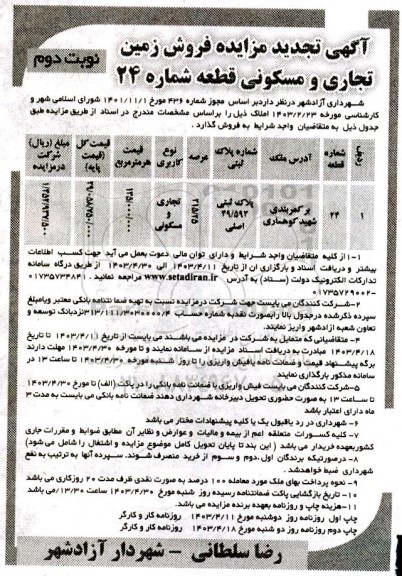 آگهی تجدید مزایده فروش زمین
تجاری و مسکونی قطعه شماره ۲۴
نوبت دوم
شهرداری آزادشهر درنظر دارد بر اساس مجوز شماره ۴۳۶ مورخ ۱۴۰۱/۱۱/۱ شورای اسلامی شهر و
کارشناسی مورخه ۱۴۰۳/۲/۲۳ املاک ذیل را براساس مشخصات مندرج در اسناد از طریق مزایده طبق
جدول ذیل به متقاضیان واجد شرایط به فروش گذارد.
ردیف شماره قطعه آدرس ملک شماره پلاک ثبتی عرصه نوع کاربری قیمت هر مترمربع قیمت کل (قیمت پایه) مبلغ (ریال) شرکت در مزایده
۱ ۲۴ بر کمربندی شهید کوهساری پلاک ثبتی ۳۹/۵۹۲ اصلی تجاری و مسکونی
۱-۱ از کلیه متقاضیان واجد شرایط و دارای توان مالی دعوت بعمل می آید جهت کسب اطلاعات
بیشتر و دریافت اسناد و بارگزاری آن از تاریخ ۱۴۰۳/۴/۱۱ الی ۱۴۰۳/۴/۳۰ از طریق درگاه سامانه
تدارکات الکترونیک دولت (ستاد) به آدرس www.setadiran.ir مراجعه نمائید. ۰۱۷۳۵۷۳۴۸۴۱
-۰۱۷۳۵۷۲۹۰۰۲
۲-شرکت کنندگان می بایست جهت شرکت درمزایده نسبت به تهیه ضمانتنامه بانکی معتبر ویامبلغ
سپرده ذکرشده درجدول بالا رابصورت نقدبه شماره حساب نزدبانک توسعه و
تعاون شعبه آزادشهر واریز نمایند.
۴- متقاضیانی که متمایل به شرکت در مزایده می باشند می بایست از تاریخ ۱۴۰۳/۴/۱۱ تا تاریخ
۱۴۰۳/۴/۱۸ مبادرت به دریافت اسناد مزایده از سامانه نمایند و تا مورخه ۱۴۰۳/۴/۳۰ مهلت دارند
برگه پیشنهاد قیمت و ضمانت نامه یافیش واریزی را تا روز شنبه مورخه ۱۴۰۳/۴/۳۰ تا ساعت ۱۳ در
سامانه مذکور بارگذاری نمایند.
۵-شرکت کنندگان می بایست فیش واریزی یا ضمانت نامه بانکی را در پاکت (الف) تا مورخ ۱۴۰۳/۴/۳۰
تا ساعت ۱۳ به صورت حضوری تحویل دبیرخانه شهرداری دهند ضمانت نامه بانکی می بایست به مدت ۳
ماه دارای اعتبار باشد
۶- شهرداری در رد یاقبول یک یا کلیه پیشنهادات مختار می باشد
۷-کلیه کسورات متعلقه اعم از بیمه و مالیات و عوارض و نظایر آن مطابق ضوابط و مقررات جاری
کشوربعهده خریدار می باشد (این بند تا پایان تحویل کامل موضوع مزایده و اشتغال را شامل می شود)
۸- درصورتیکه برندگان اول، دوم و سوم از خرید منصرف شوند. سپرده آنها به ترتیب به نفع
شهرداری ضبط خواهدشد.
۹- نحوه پرداخت بهای ملک مورد معامله ۱۰۰ درصد به صورت نقدی ظرف مدت ۲۰ روزکاری می باشد
۱۰- تاریخ بازگشایی پاکت ضمانتنامه رسیده روز شنبه مورخ ۱۴۰۳/۴/۳۰ ساعت ۱۳/۳۰ می باشد
۱۱-هزینه چاپ و روزنامه بعهده برنده مزایده می باشد.
چاپ اول روزنامه روز دوشنبه مورخ ۱۴۰۳/۴/۱۱ روزنامه کار و کارگر
چاپ دوم روزنامه روز دو شنبه مورخ ۱۴۰۳/۴/۱۸ روزنامه کار و کارگر
رضا سلطانی – شهردار آزادشهر